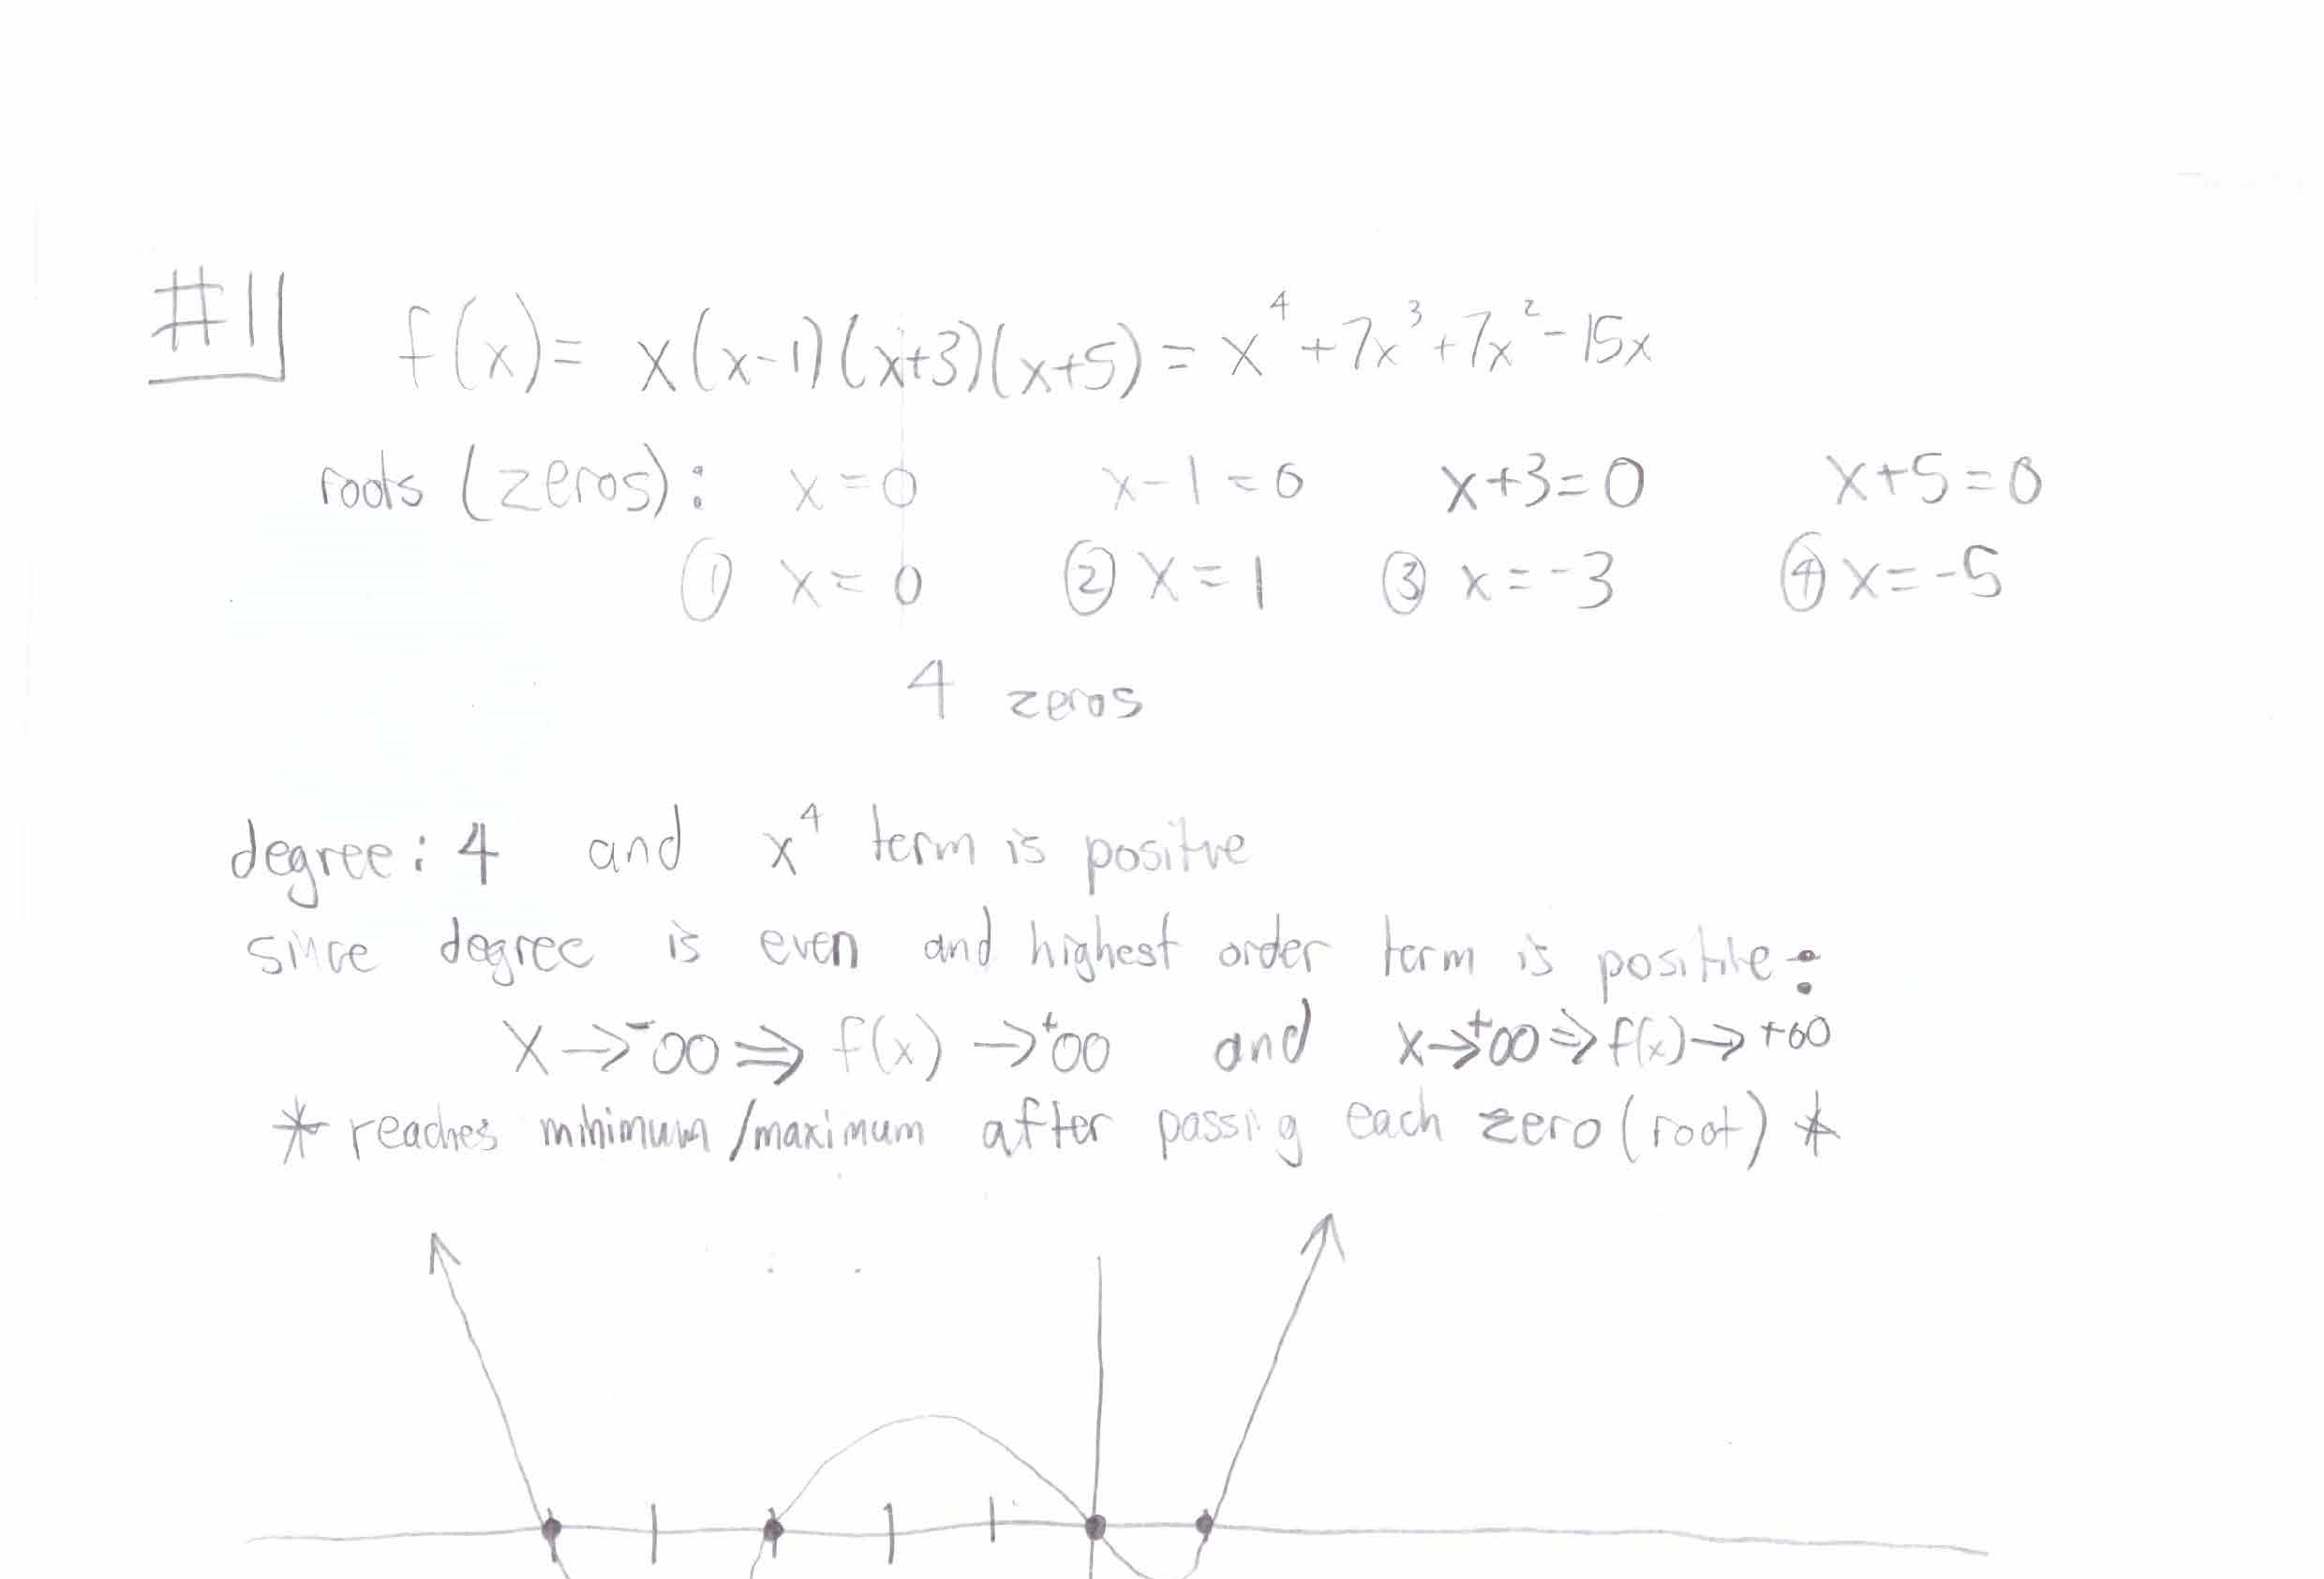 #1
f(x) = x(x-1)(x+3)(x+5) = x⁴ + 7x³ + 7x² - 15x
roots (zeros): x=0 x-1=0 x+3=0 x+5=0
① x=0 ② x=1 ③ x=-3 ④ x=-5
4 zeros
degree: 4 and x⁴ term is positive
since degree is even and highest order term is positive:
x→-∞ ⇒ f(x) →+∞ and x→+∞ ⇒ f(x)→+∞
* reaches minimum/maximum after passing each zero (root) *